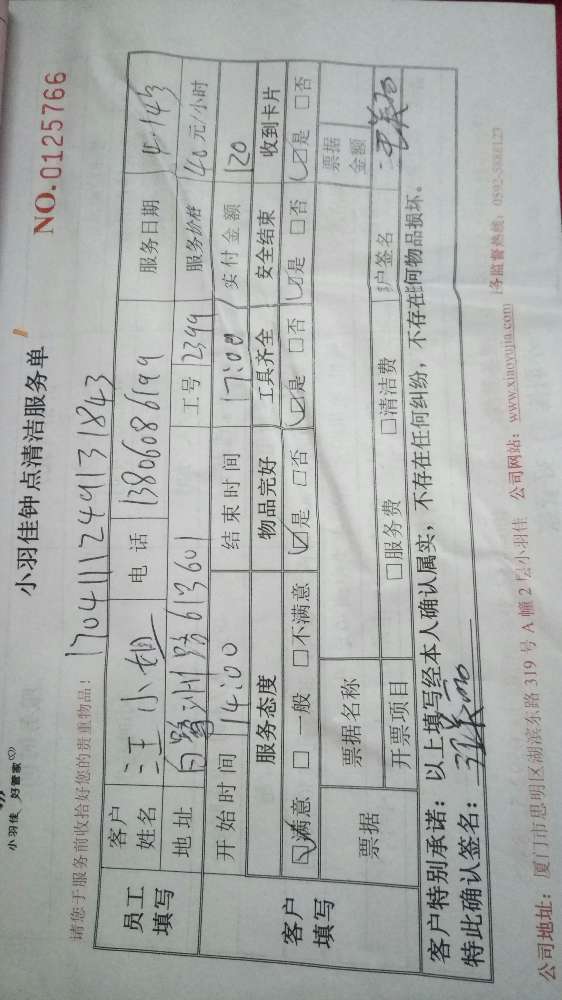 小羽佳 好管家
小羽佳钟点清洁服务单
NO.0125766
请您于服务前收拾好您的贵重物品！
170411124913 1843
员工填写
客户姓名 汪小姐 电话 13806086199 服务日期 4.143
地址 白鹭洲路613601 工号 2399 服务价格 40元/小时
客户填写
开始时间 14:00 结束时间 17:00 实付金额 120
服务态度 物品完好 工具齐全 安全结束 收到卡片
☑满意 □一般 □不满意 ☑是 □否 ☑是 □否 ☑是 □否 ☑是 □否
票据 票据名称 票据金额
开票项目 □服务费 □清洁费 户签名
客户特别承诺：以上填写经本人确认属实，不存在任何纠纷，不存在任何物品损坏。
特此确认签名：
公司地址：厦门市思明区湖滨东路319号A幢2层小羽佳 公司网站：www.xiaoyujia.com 务监督热线：0592-5882123